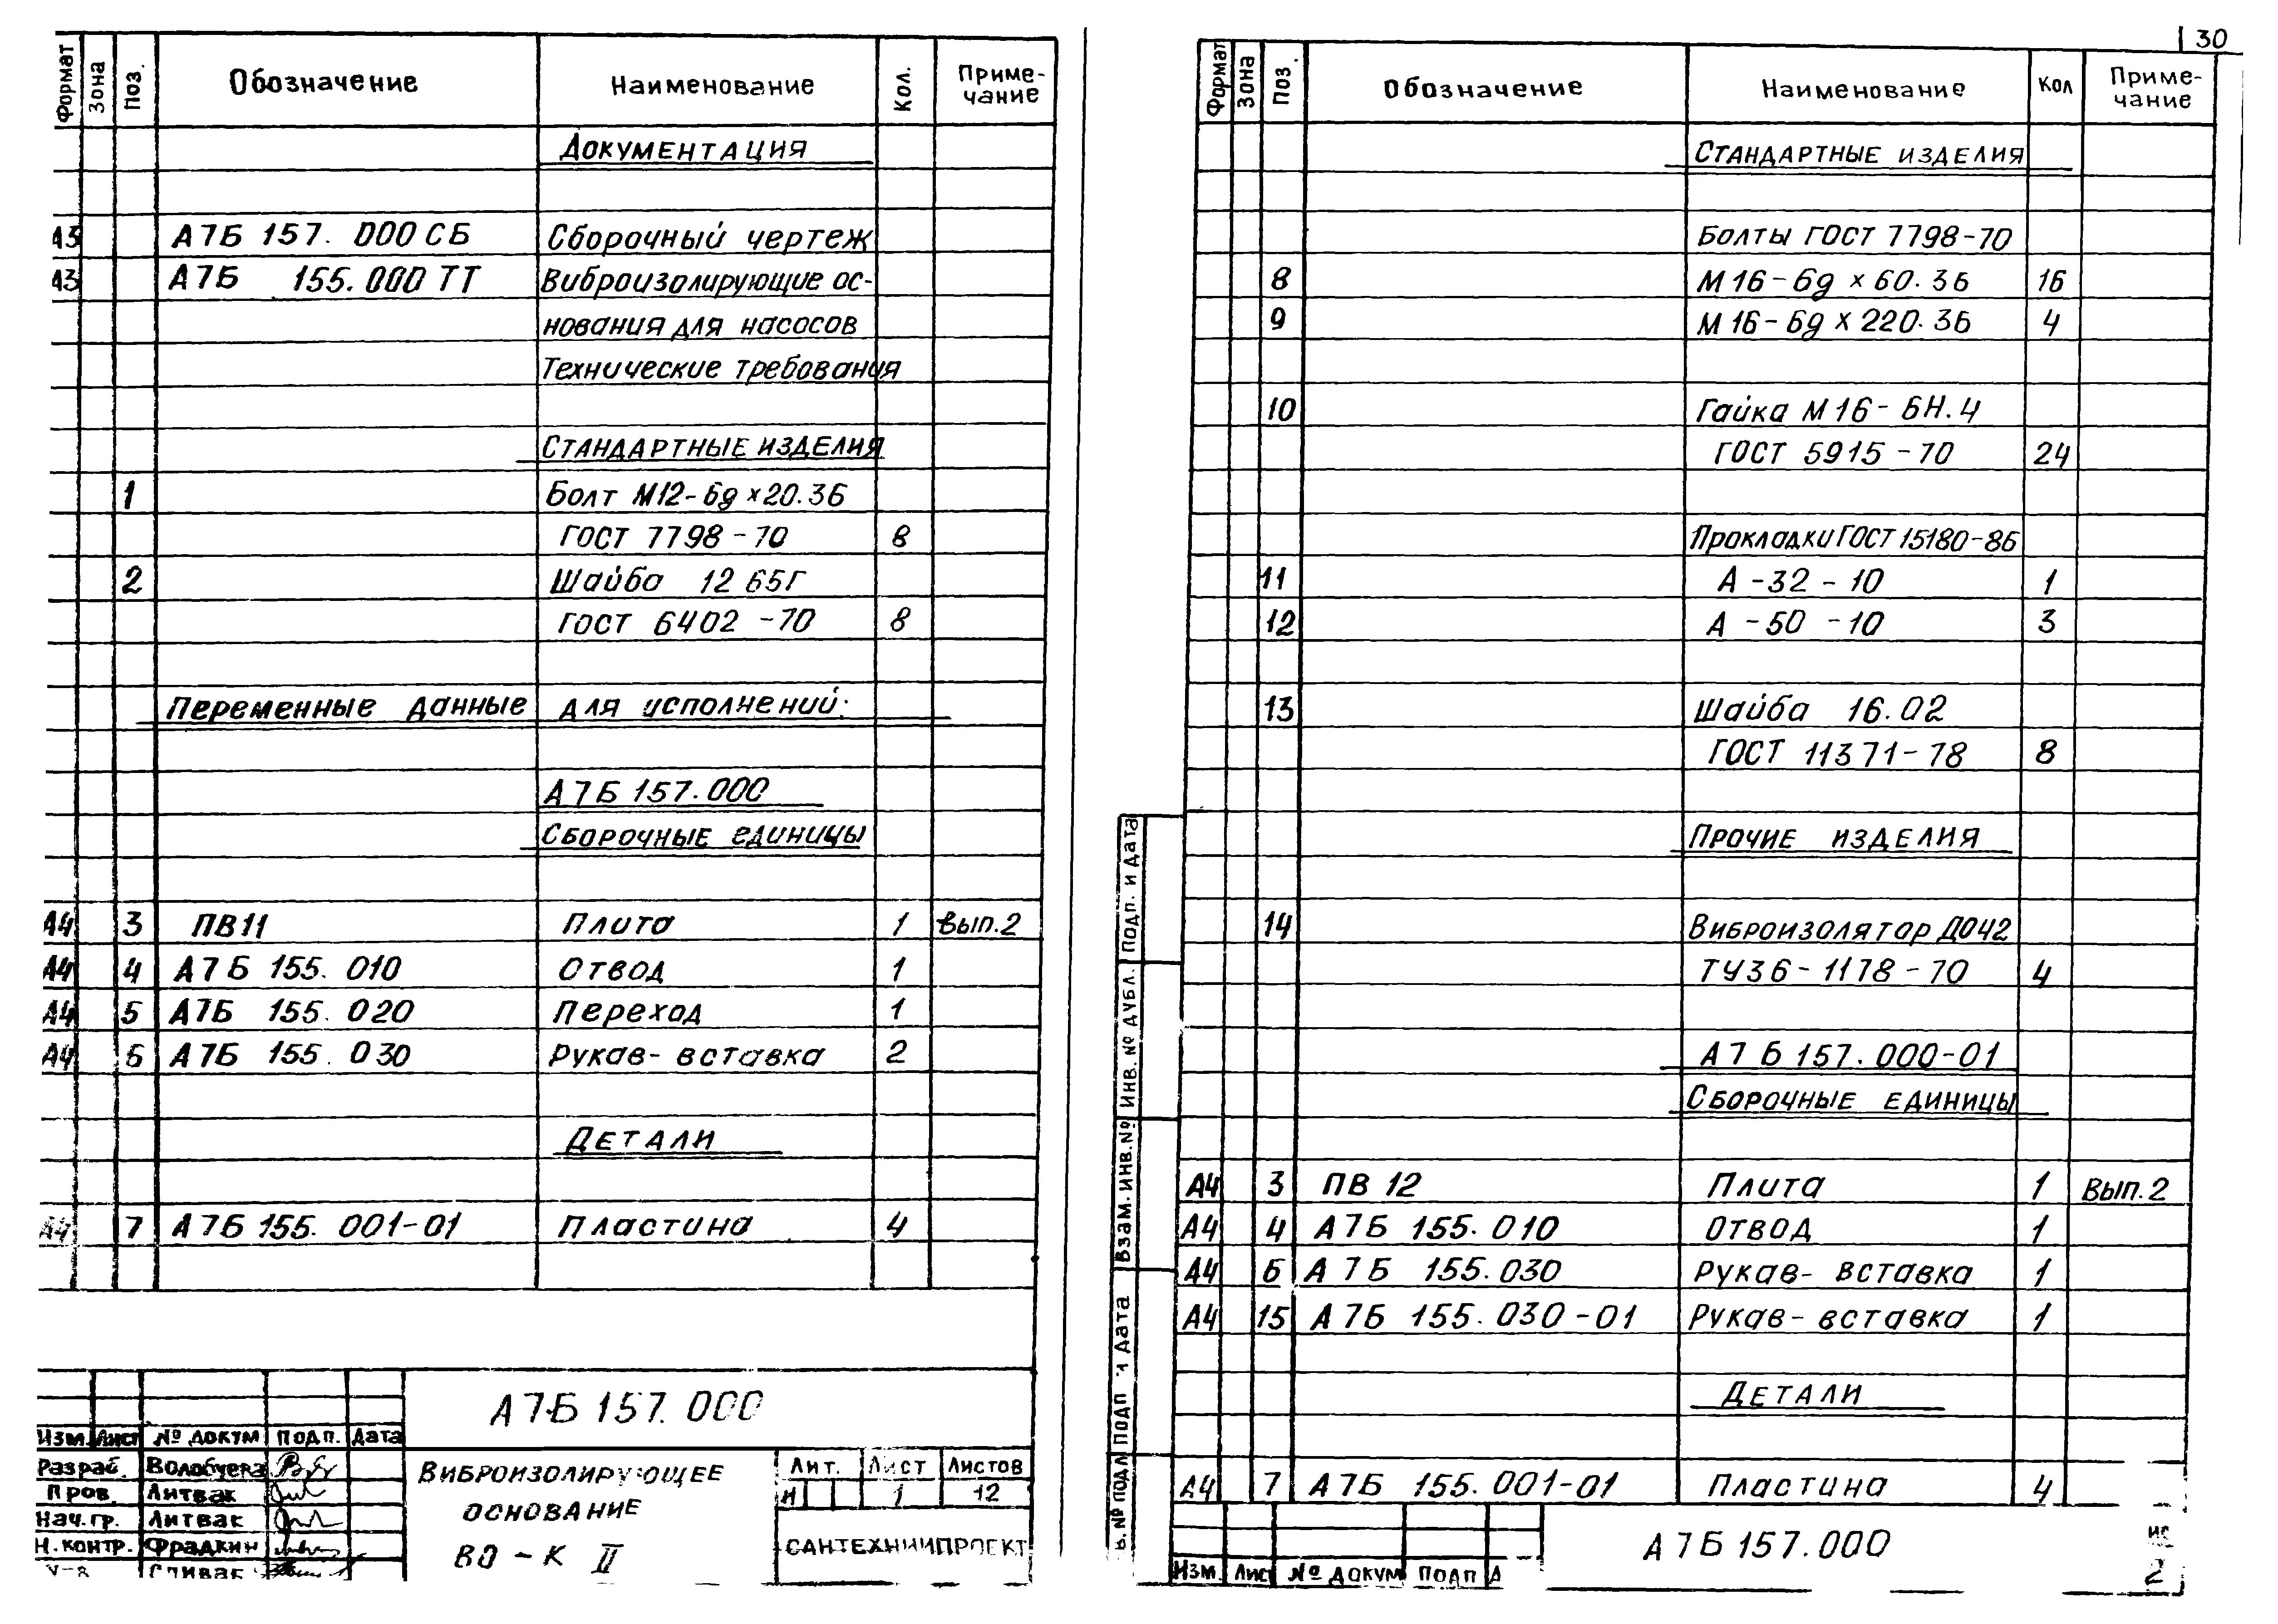 Формат Зона Поз. Обозначение Наименование Кол. Приме-
чание
Документация
А3 А7Б 157. 000 СБ Сборочный чертеж
А3 А7Б 155.000 ТТ Виброизолирующие ос-
нования для насосов
Технические требования
Стандартные изделия
1 Болт М12-6g×20.36
ГОСТ 7798-70 8
2 Шайба 12 65Г
ГОСТ 6402-70 8
Переменные данные для исполнений:
А7Б 157.000
Сборочные единицы
А4 3 ПВ11 Плита 1 Вып.2
А4 4 А7Б 155.010 Отвод 1
А4 5 А7Б 155.020 Переход 1
А4 6 А7Б 155.030 Рукав-вставка 2
Детали
А4 7 А7Б 155.001-01 Пластина 4
А7Б 157.000
Изм. Лист № докум Подп. Дата
Разраб. Волобуева
Пров. Литвак
Нач.гр. Литвак
Н.контр. Фрадкин
Спивак
Виброизолирующее
основание
ВО-К II
Лит. Лист Листов
И 1 12
САНТЕХНИИПРОЕКТ
30
Формат Зона Поз. Обозначение Наименование Кол Приме-
чание
Стандартные изделия
Болты ГОСТ 7798-70
8 М16-6g×60.36 16
9 М16-6g×220.36 4
10 Гайка М16-6Н.4
ГОСТ 5915-70 24
Прокладки ГОСТ 15180-86
11 А-32-10 1
12 А-50-10 3
13 Шайба 16.02
ГОСТ 11371-78 8
Прочие изделия
14 Виброизолятор ДО42
ТУ36-1178-70 4
А7Б 157.000-01
Сборочные единицы
А4 3 ПВ 12 Плита 1 Вып.2
А4 4 А7Б 155.010 Отвод 1
А4 6 А7Б 155.030 Рукав-вставка 1
А4 15 А7Б 155.030-01 Рукав-вставка 1
Детали
А4 7 А7Б 155.001-01 Пластина 4
Подп. и дата
Инв. № дубл.
Взам. инв. №
Подп и дата
в. № подл
Изм. Лист № докум Подп Д
А7Б 157.000
ис
2